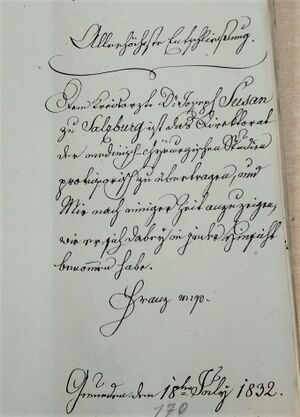 Allerhöchste Entschließung.
Dem Kreisarzte Dr. Joseph Susan
zu Salzburg ist das Direktorat
der medinisch chirurgischen Studien
provisorisch zu übertragen, und
Mir nach einiger Zeit anzuzeigen,
wie er sich dabey in jeder Hinsicht
benommen habe.
Franz mp.
Gmunden den 18ten July 1832.
170